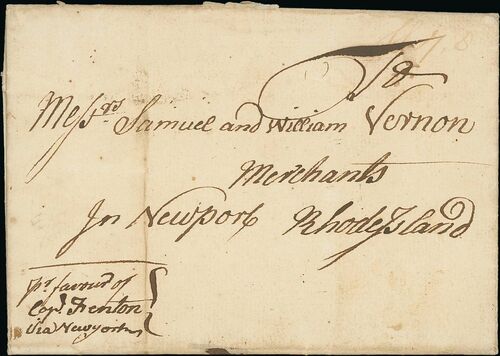 To
Messrs Samuel and William Vernon
Merchants
In Newport Rhode Island
pr. favour of
Capt. Fenton
via Newyork